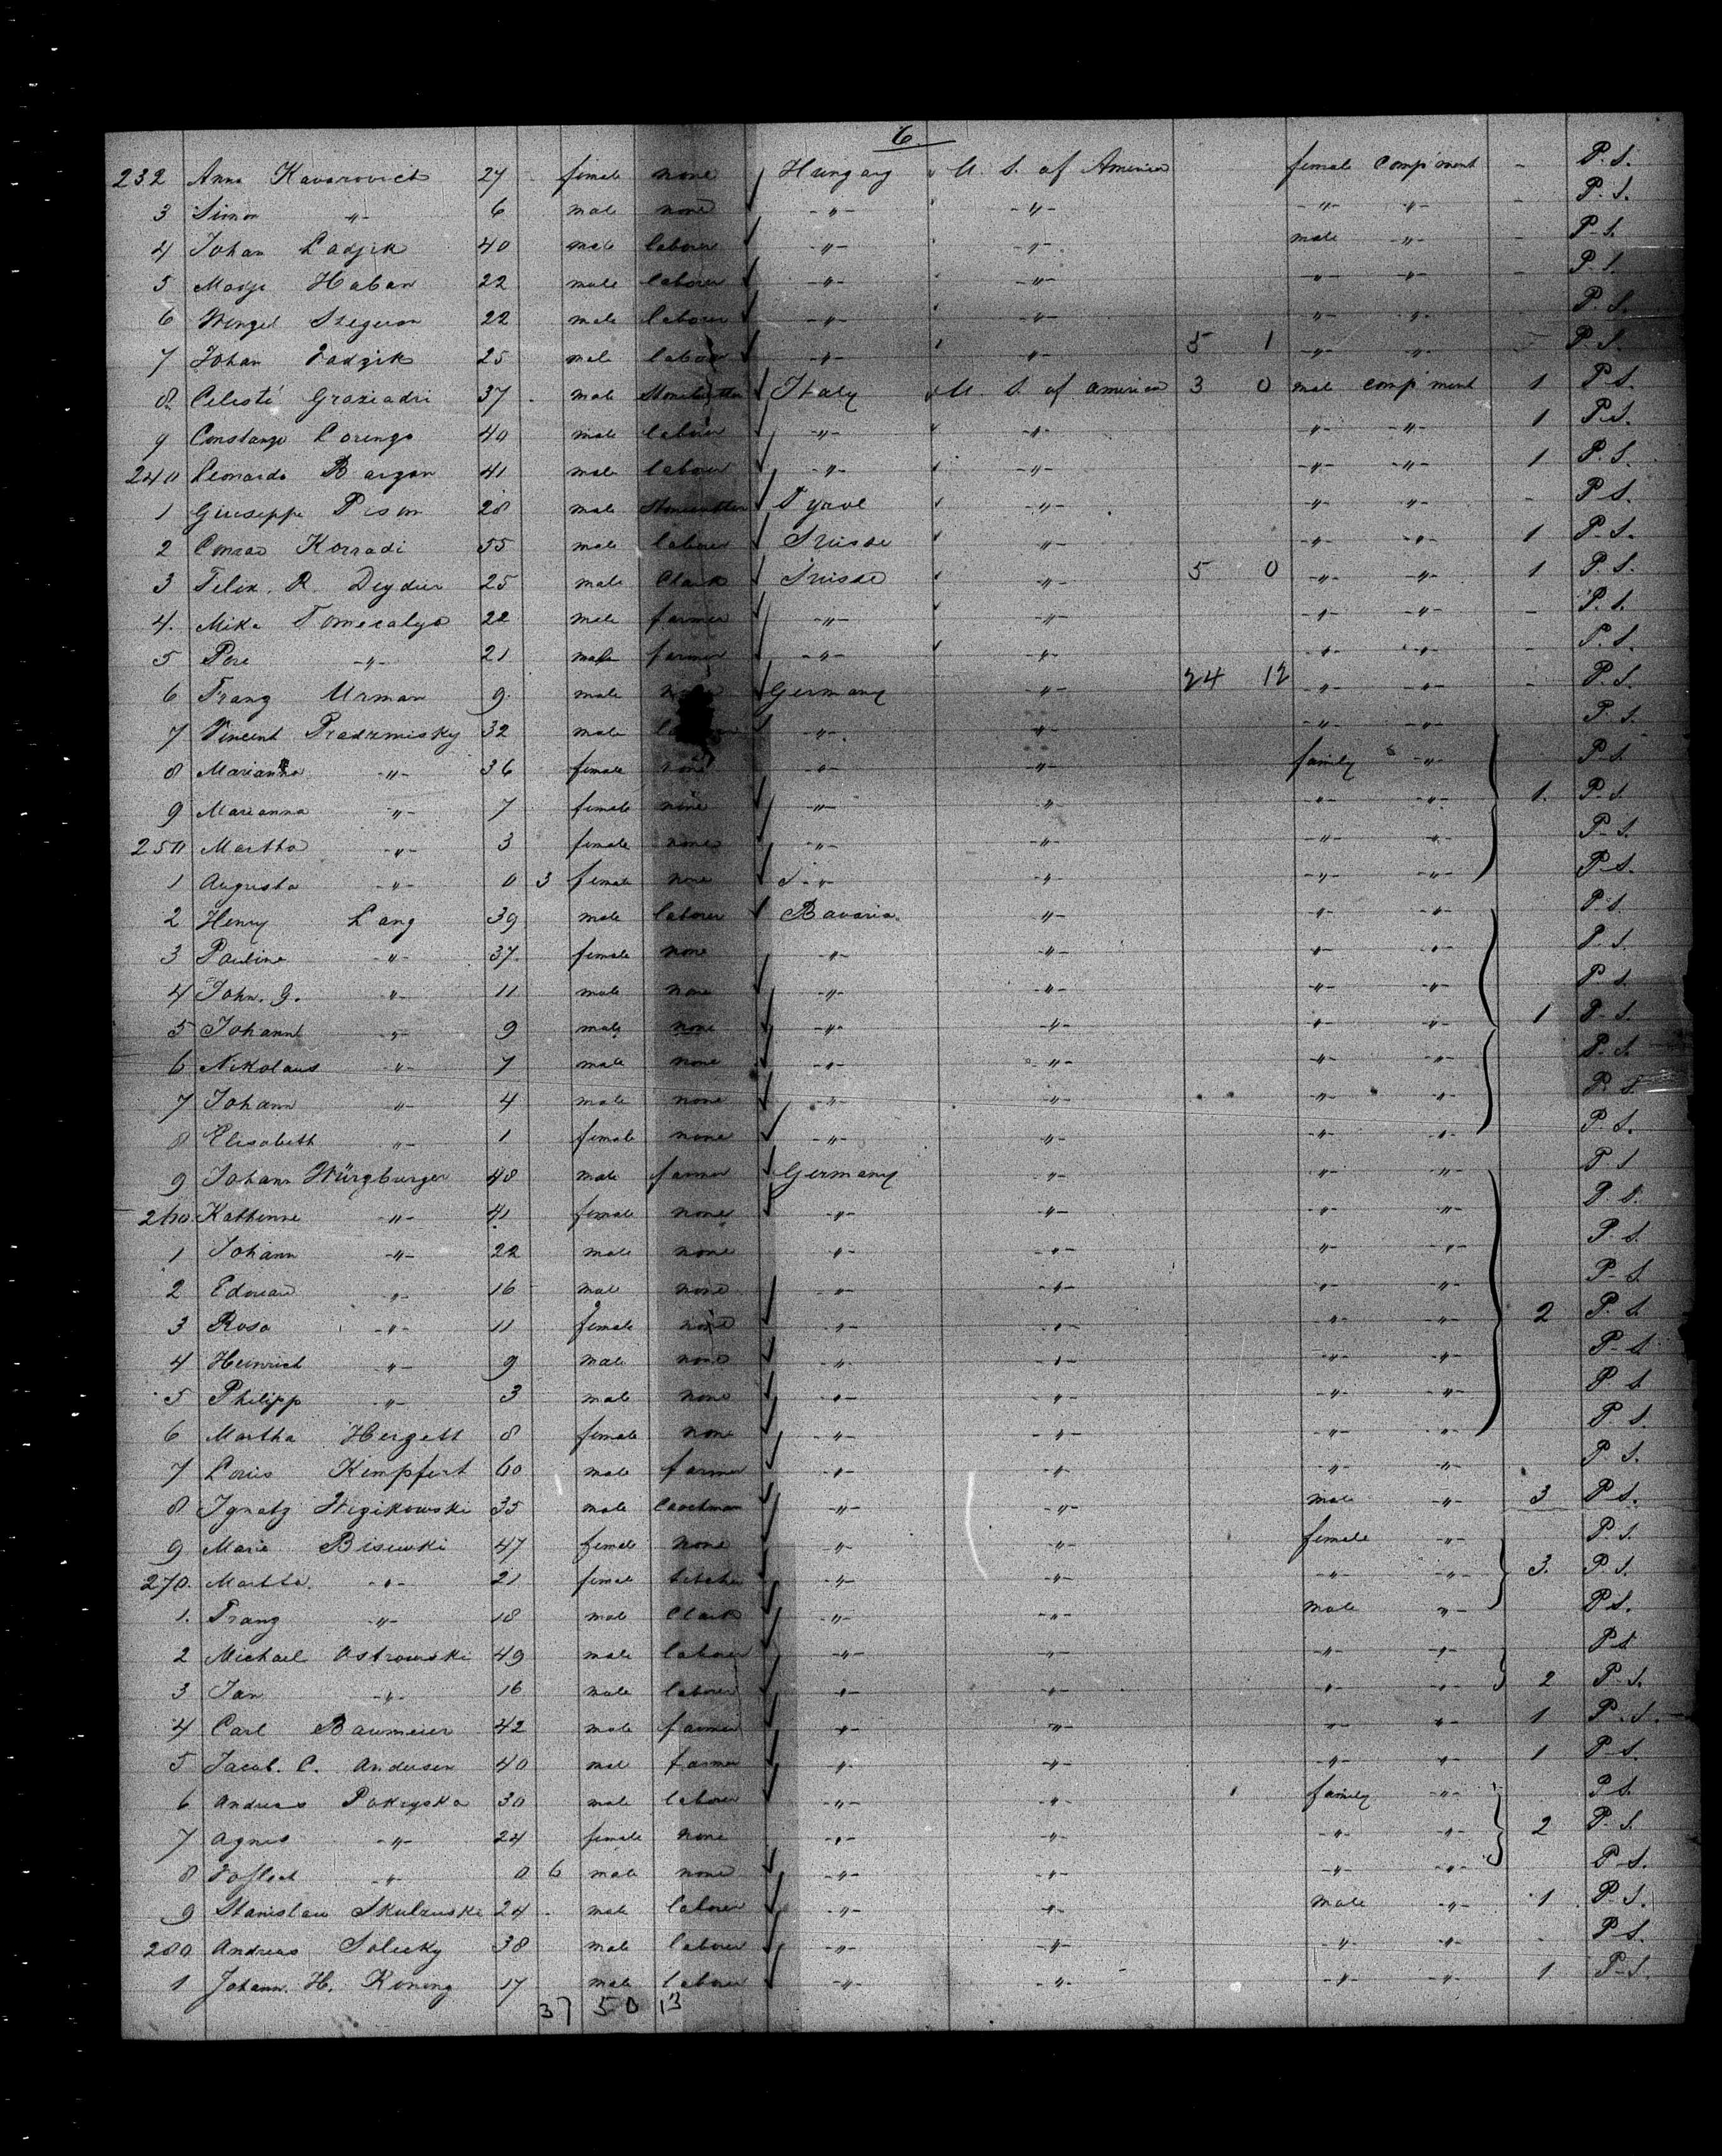 6.
232 Anna Kavarovich 27 female none Hungary U. S. of America female comp'ment - P. S.
3 Simon -"- 6 male none -"- -"- -"- -"- - P. S.
4 Johan Ladzik 40 male laborer -"- -"- male -"- - P. S.
5 Haban 22 male laborer -"- -"- -"- -"- - P. S.
6 22 male laborer -"- -"- -"- -"- - P. S.
7 Johan 25 male labour -"- -"- 5 1 -"- -"- - P. S.
8. Celesté Graziadri 37 male Stonecutter Italy U. S. of america 3 0 male comp'ment 1 P. S.
9 Constanzo Lorengo 40 male labour -"- -"- -"- -"- 1 P. S.
240 Leonardo Bargan 41 male labour -"- -"- -"- -"- 1 P. S.
1 Giuseppe Pison 28 male Stonecutter Tyrol -"- -"- -"- - P. S.
2 Conrad Korradi 55 male labour Suisse -"- -"- -"- 1 P. S.
3 Felix. R. Deydier 25 male Clark Suisse -"- 5 0 -"- -"- 1 P. S.
4. Mika 22 male farmer -"- -"- -"- -"- - P. S.
5 Pere -"- 21 male farmer -"- -"- -"- -"- - P. S.
6 Franz Urman 9. male Germany -"- 24 12 -"- -"- - P. S.
7 Vincent Pradzmisky 32 male -"- -"- -"- -"- P. S.
8 Marianna -"- 36 female none -"- -"- family -"- P. S.
9 Marianna -"- 7 female none -"- -"- -"- -"- 1. P. S.
250 Martha -"- 3 female none -"- -"- -"- -"- P. S.
1 Augusta -"- 0 3 female none -"- -"- -"- -"- P. S.
2 Henry Lang 39 male laborer Bavaria -"- -"- -"- P. S.
3 Pauline -"- 37. female none -"- -"- -"- -"- P. S.
4 John. G. -"- 11 male none -"- -"- -"- -"- P. S.
5 Johann -"- 9 male none -"- -"- -"- -"- 1 P. S.
6 Nikolaus -"- 7 male none -"- -"- -"- -"- P. S.
7 Johann -"- 4 male none -"- -"- -"- -"- P. S.
8 Elisabeth -"- 1 female none -"- -"- -"- -"- P. S.
9 Johann Würzburger 48 male farmer Germany -"- -"- -"- P. S.
260 Katherine -"- 41 female none -"- -"- -"- -"- P. S.
1 Johann -"- 22 male none -"- -"- -"- -"- P. S.
2 Edouard -"- 16 male none -"- -"- -"- -"- P. S.
3 Rosa -"- 11 female none -"- -"- -"- -"- 2 P. S.
4 Heinrich -"- 9 male none -"- -"- -"- -"- P. S.
5 Philipp -"- 3 male none -"- -"- -"- -"- P. S.
6 Martha Hergett 8 female none -"- -"- -"- -"- P. S.
7 Louis Kempfert 60 male farmer -"- -"- -"- -"- P. S.
8 Ignatz Wizikowski 35 male Coachman -"- -"- male -"- 3 P. S.
9 Marie Bisewki 47 female none -"- -"- female -"- P. S.
270. Martha -"- 21 female -"- -"- -"- -"- 3. P. S.
1. Franz -"- 18 male Clark -"- -"- male -"- P. S.
2 Michael Ostrowski 49 male laborer -"- -"- -"- -"- P. S.
3 Jan -"- 16 male laborer -"- -"- -"- -"- 2 P. S.
4 Carl Baumeier 42 male farmer -"- -"- -"- -"- 1 P. S.
5 Jacob. C. Andersen 40 male farmer -"- -"- -"- -"- 1 P. S.
6 Andreas Pokryska 30 male laborer -"- -"- family -"- P. S.
7 Agnes -"- 24 female none -"- -"- -"- -"- 2 P. S.
8 -"- 0 6 male none -"- -"- -"- -"- P. S.
9 Stanislaw Skulzuski 24 male laborer -"- -"- male -"- 1 P. S.
280 Andreas Solecky 38 male laborer -"- -"- -"- -"- - P. S.
1 Johann. H. Koning 17 male laborer -"- -"- -"- -"- 1 P. S.
37 50 13